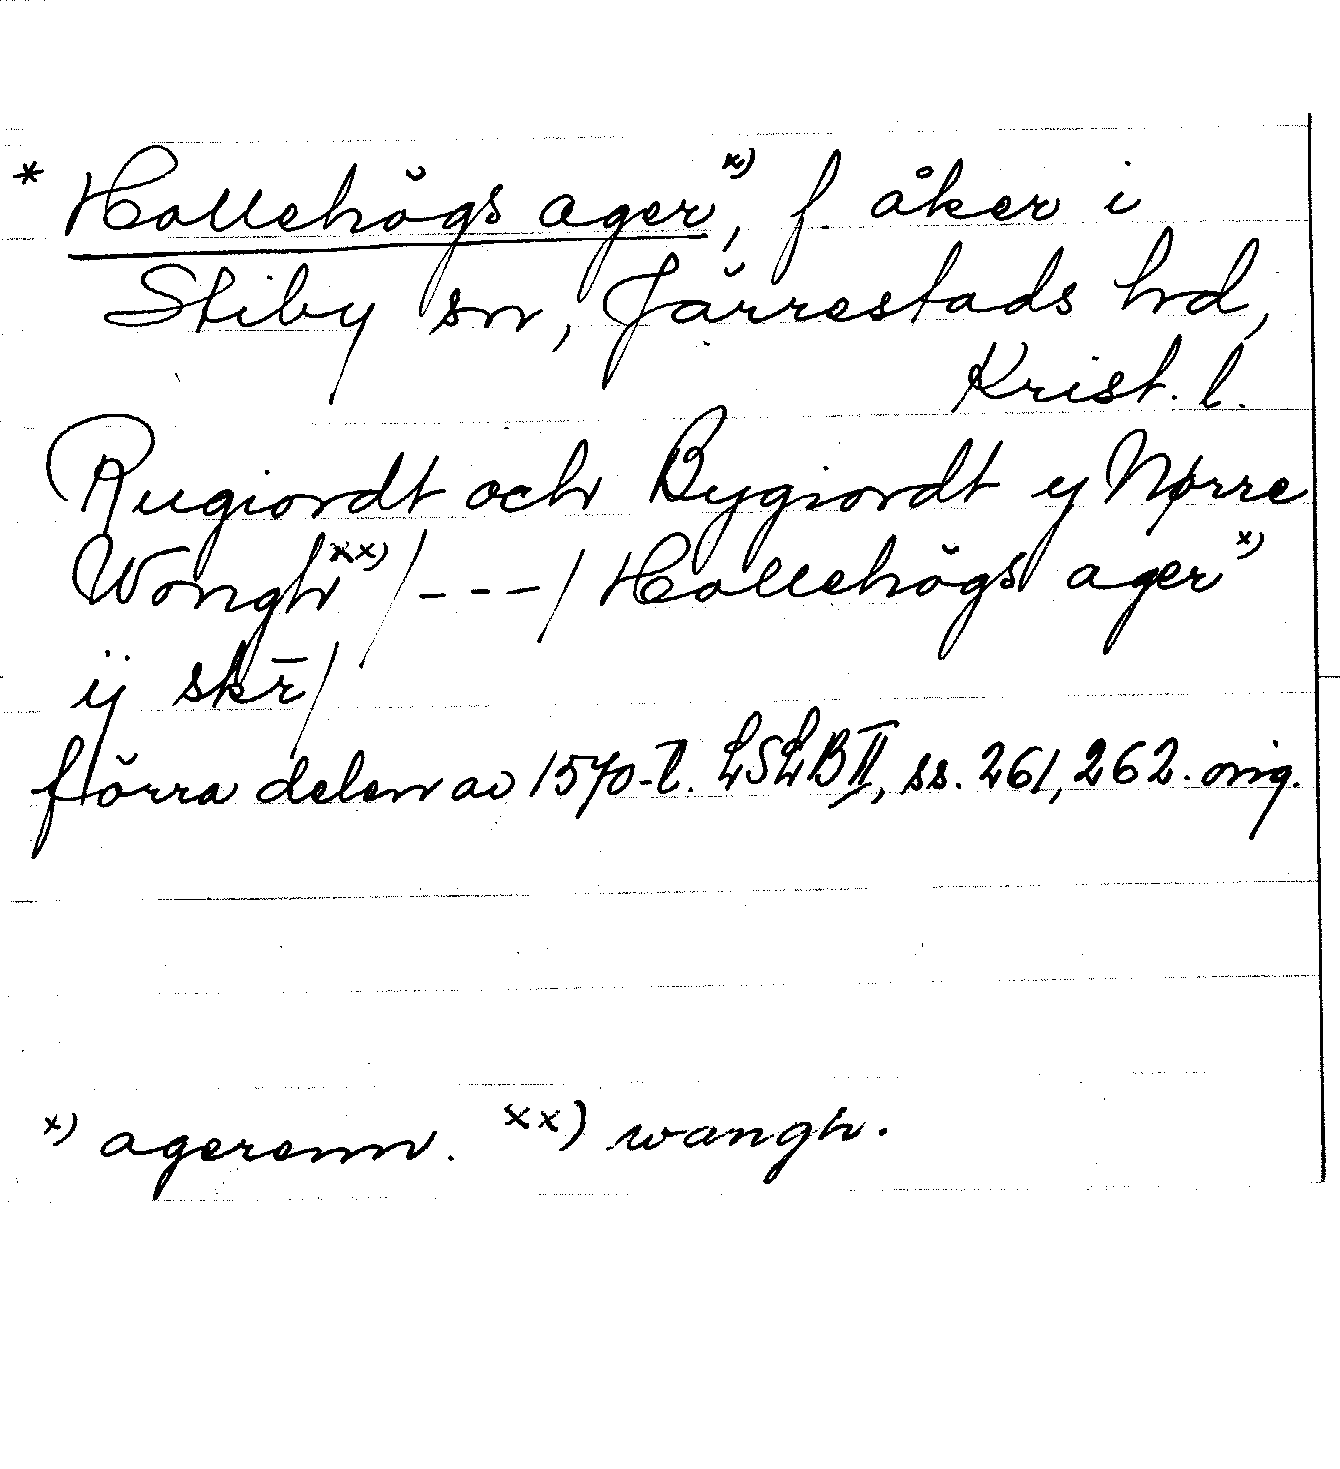 * Hollehögs ager x), f. åker i
Stiby sn, Järrestads hd,
Krist. l.
Rugiordt och Bygiordt y Nørre
Wongh xx) /---/ Hollehögs ager x)
ij skr̄/
förra delen av 1570-t. LSLB II, ss. 261, 262. orig.
x) agerenn. xx) wangh.